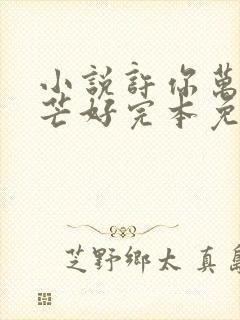 小說許你萬
芒好完本免
芝野鄉太 真島